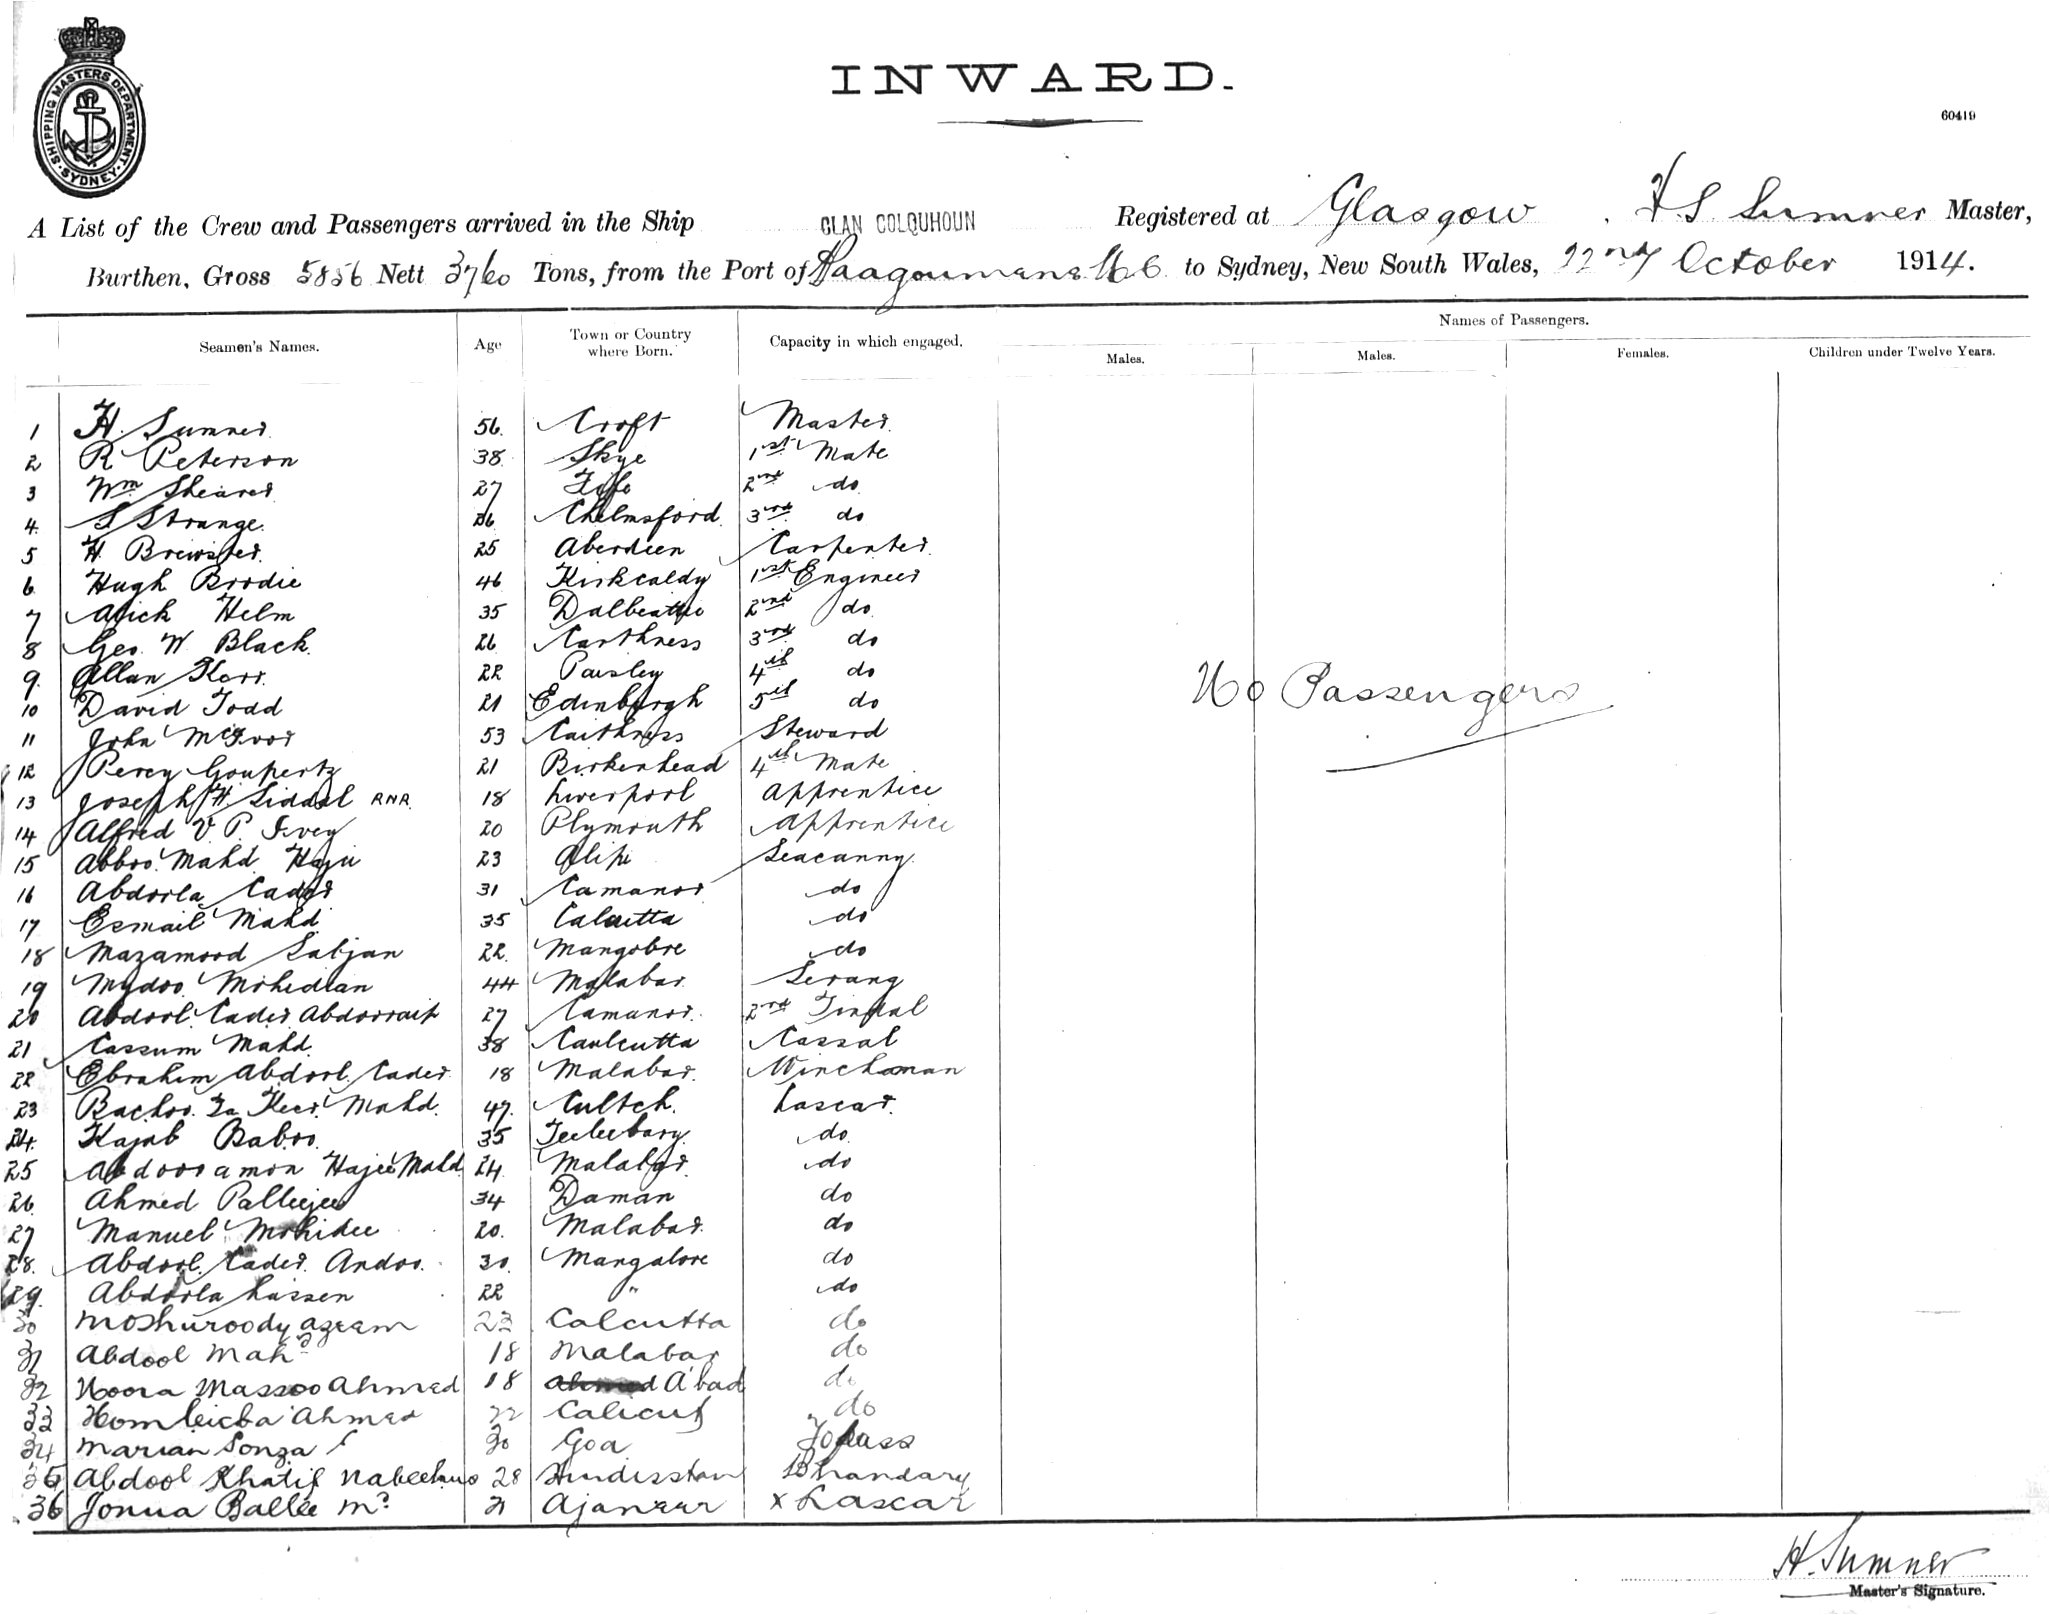 SHIPPING MASTERS DEPARTMENT. SYDNEY.
INWARD.
60419
A List of the Crew and Passengers arrived in the Ship CLAN COLQUHOUN Registered at Glasgow. H S Sumner Master,
Burthen, Gross 5856 Nett 3760 Tons, from the Port of Paagoumene N C to Sydney, New South Wales, 22nd October 1914.
Seamen's Names. Age Town or Country where Born. Capacity in which engaged. Names of Passengers.
Males. Males. Females. Children under Twelve Years.
1 H. Sumner 56. Croft Master
2 R Peterson 38 Skye 1st Mate
3 Wm Shearer 27 Fife 2nd do
4. S Strange. 26 Chelmsford 3rd do
5 H. Brewster. 25 Aberdeen Carpenter
6 Hugh Brodie 46 Kirkcaldy 1st Engineer
7 Alick Helm 35 Dalbeattie 2nd do
8 Geo. W. Black 26 Carthness 3rd do
9. Allan Kerr. 22 Paisley 4th do
10 David Todd 21 Edinburgh 5th do
11 John McIvor 53 Caithness Steward
12 Percy Goupertz 21 Birkenhead 4th Mate
13 Joseph H. Siddal RNR. 18 Liverpool Apprentice
14 Alfred V. P. Ivey 20 Plymouth Apprentice
15 Abboo Mahd Haju 23 Seacunny
16 Abdoola Cader 31 Camanor do
17 Esmail Mahd 35 Calcutta do
18 Mazamood Sabjan 22. Mangolore do
19 Mydoo Mohidian 44 Malabar Serang
20 Abdool Cader Abdooraip 27 Camanor. 2nd Tindal
21 Cassum Mahd. 38 Caulcutta Cassab
22 Ebrahim Abdool Cader 18 Malabar. Winchman
23 Bachoo Mahd. 47. Cultch. Lascar.
24. Kajab Baboo 35 do
25 Abdooramon Hajee Mahd 24. Malabar. do
26. Ahmed Palleejee 34 Daman do
27 Manuel Mohidee 20. Malabar. do
28. Abdool Cader Andoo. 30. Mangalore do
29. Abdoola Lassen 22 " do
30 Moshuroody Azeem 23 Calcutta do
31 Abdool Mahd 18 Malabar do
32 Noora Massoo Ahmed 18 A'bad do
33 Ahmed 22 Calicut do
34 Marian Sonza 30 Goa Topass
35 Abdool Khatif 28 Hindisstan Bhandary
36 Jonua Ballee Md 21 x Lascar
No Passengers
H. Sumner
Master's Signature.